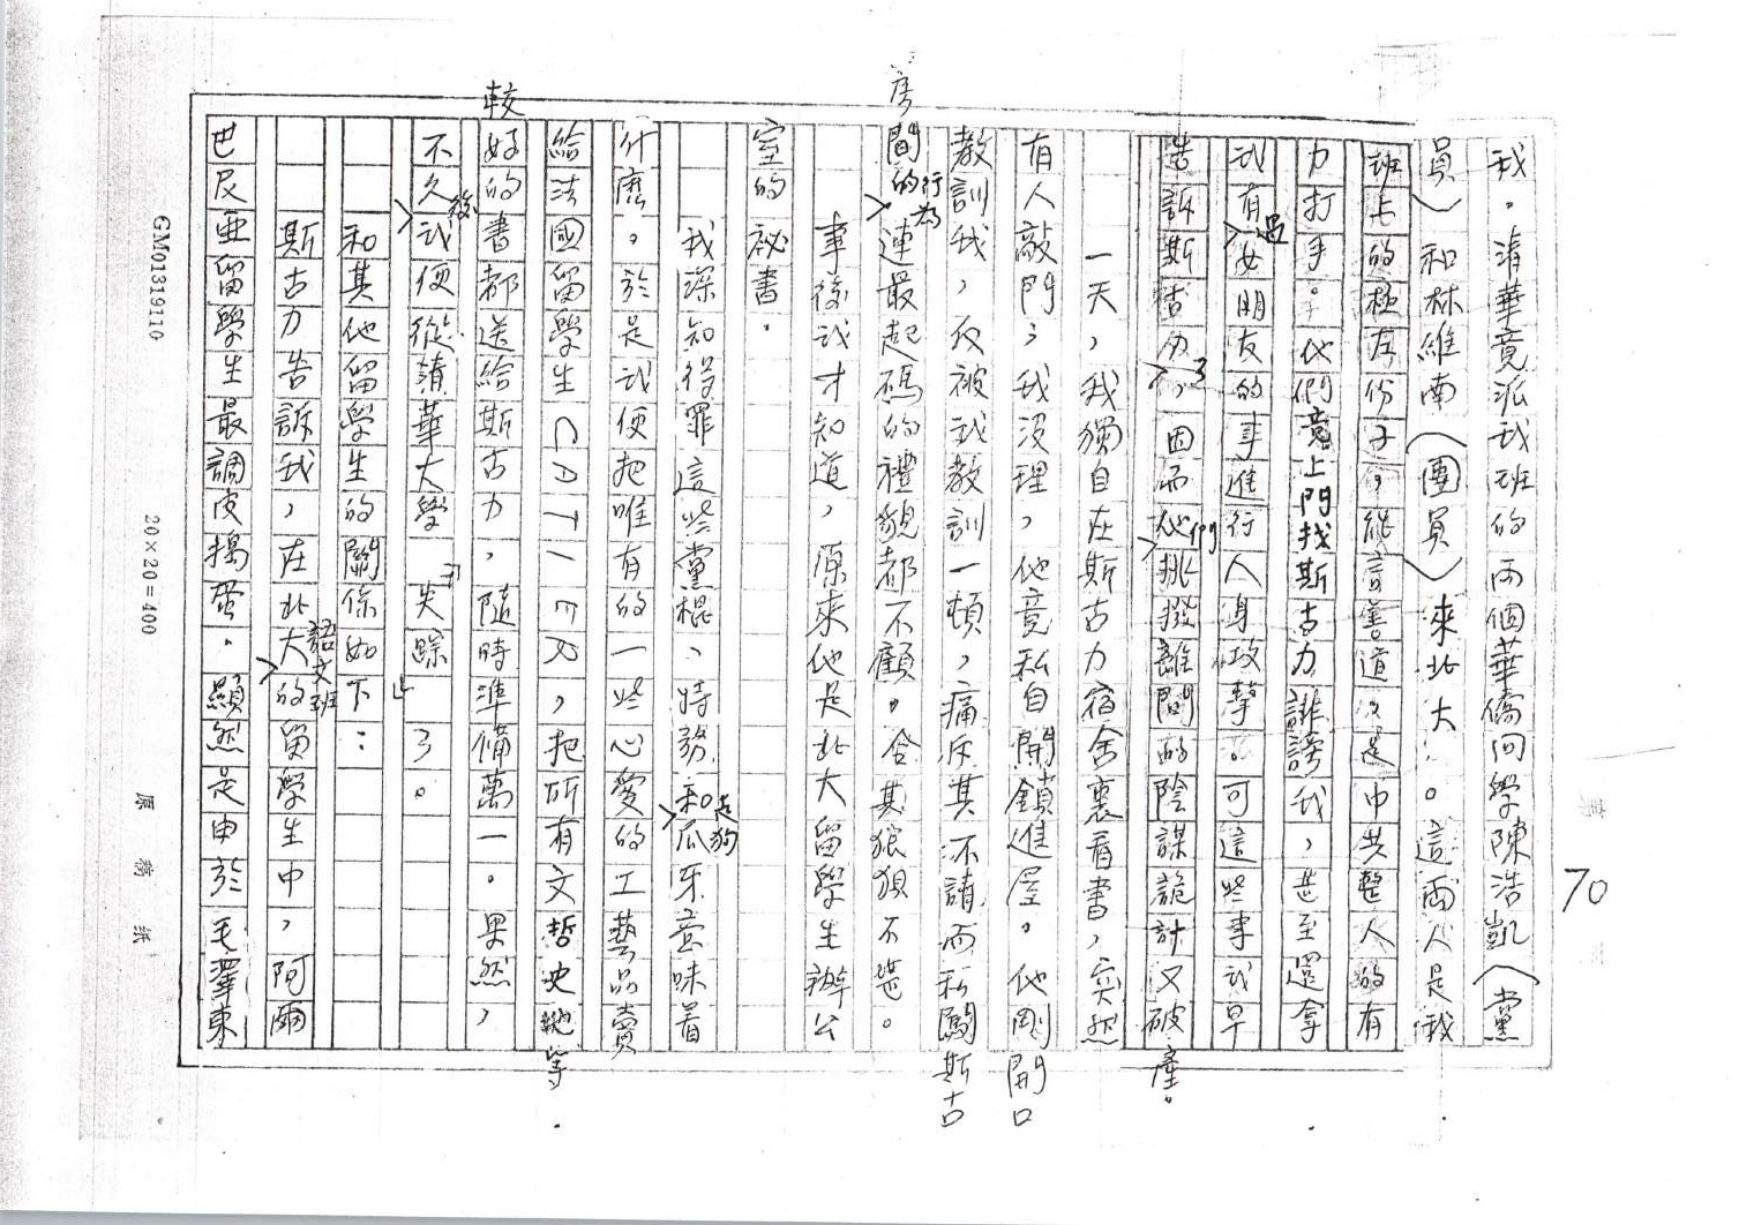 70
我。清華竟派我班的兩個華僑同學陳浩凱(黨
員)和林維南(團員)來北大。這兩人是我
班上的極左份子,縱言善道,是中共整人的有
力打手。他們竟上門找斯古力誹謗我,甚至還拿
我有過女朋友的事進行人身攻擊。可這些事我早
告訴斯古力了,因而他們挑撥離間的陰謀詭計又破產。
一天,我獨自在斯古力宿舍裏看書,突然
有人敲門,我沒理,他竟私自開鎖進屋。他剛開口
教訓我,反被我教訓一頓,痛斥其不請而私闖斯古
房間的行為連最起碼的禮貌都不顧。令其狼狽不堪。
事後我才知道,原來他是北大留學生辦公
室的祕書。
我深知得罪這些黨棍、特務和走狗爪牙意味着
什麽。於是我便把唯有的一些心愛的工藝品賣
給法國留學生,把所有文哲史地等
較好的書都送給斯古力,隨時準備萬一。果然,
不久後我便從清華大學「失踪」了。
和其他留學生的關係如下:
斯古力告訴我,在北大語文班的留學生中,阿爾
巴尼亞留學生最調皮搗蛋。顯然是由於毛澤東
GM01319110
20×20=400
原稿紙